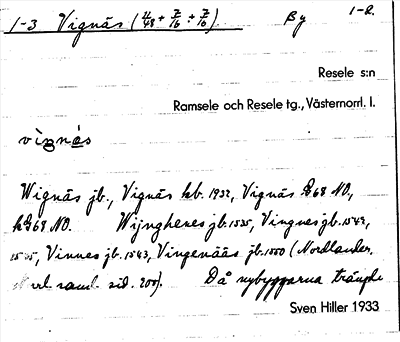 1-3 Vignäs (11/48 + 7/16 + 7/16) By 1-2.
Resele s:n
Ramsele och Resele tg., Västernorrl. l.
vignäs
Wignäs jb., Vignäs kb. 1932, Vignäs 68 NO,
68 NO. Wijnghenes jb. 1535, Vingnes jb. 1542,
Vinnes jb. 1543, Vingenääs jb. 1550 (Nordlander,
saml. sid. 200). Då nybyggarna trängde
Sven Hiller 1933